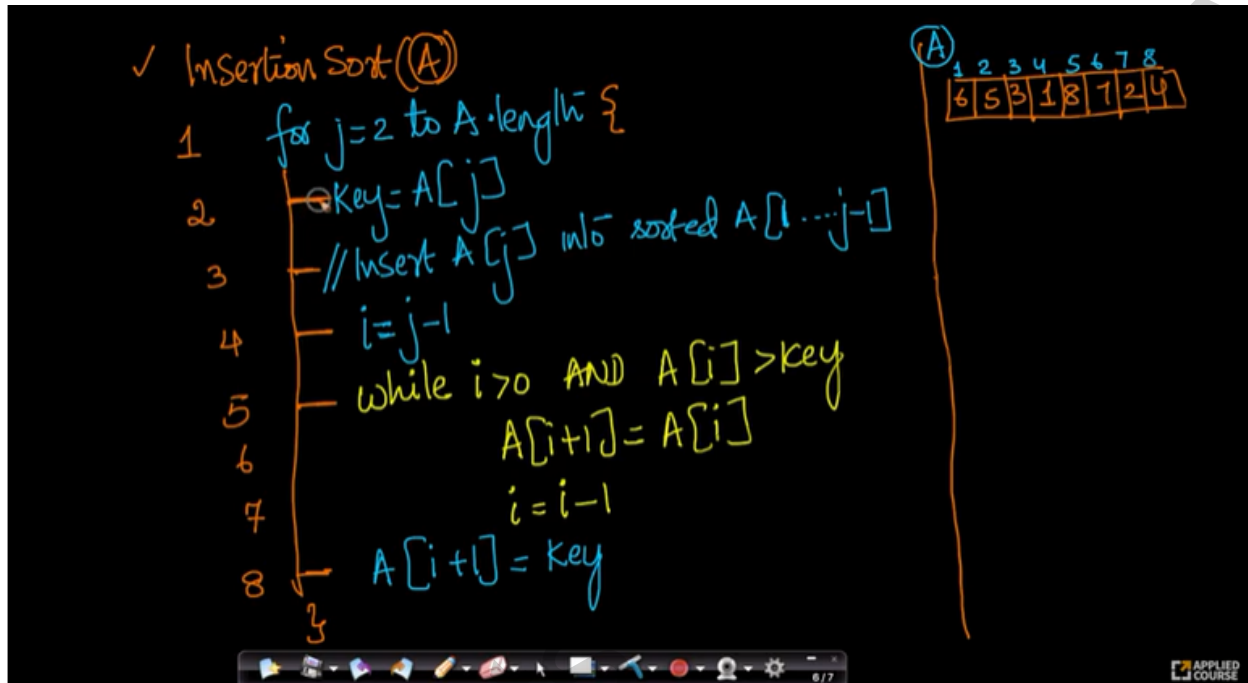 ✓ Insertion Sort (A)
1 for j=2 to A.length {
2 Key=A[j]
3 //Insert A[j] into sorted A[1....j-1]
4 i=j-1
5 while i>0 AND A[i]>Key
6 A[i+1]=A[i]
7 i=i-1
8 A[i+1]=Key
}
A
1 2 3 4 5 6 7 8
6 5 3 1 8 7 2 4
6/7
APPLIED
COURSE